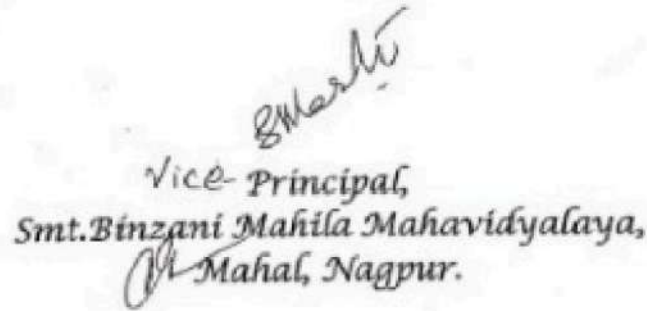 Vice- Principal,
Smt.Binzani Mahila Mahavidyalaya,
Mahal, Nagpur.